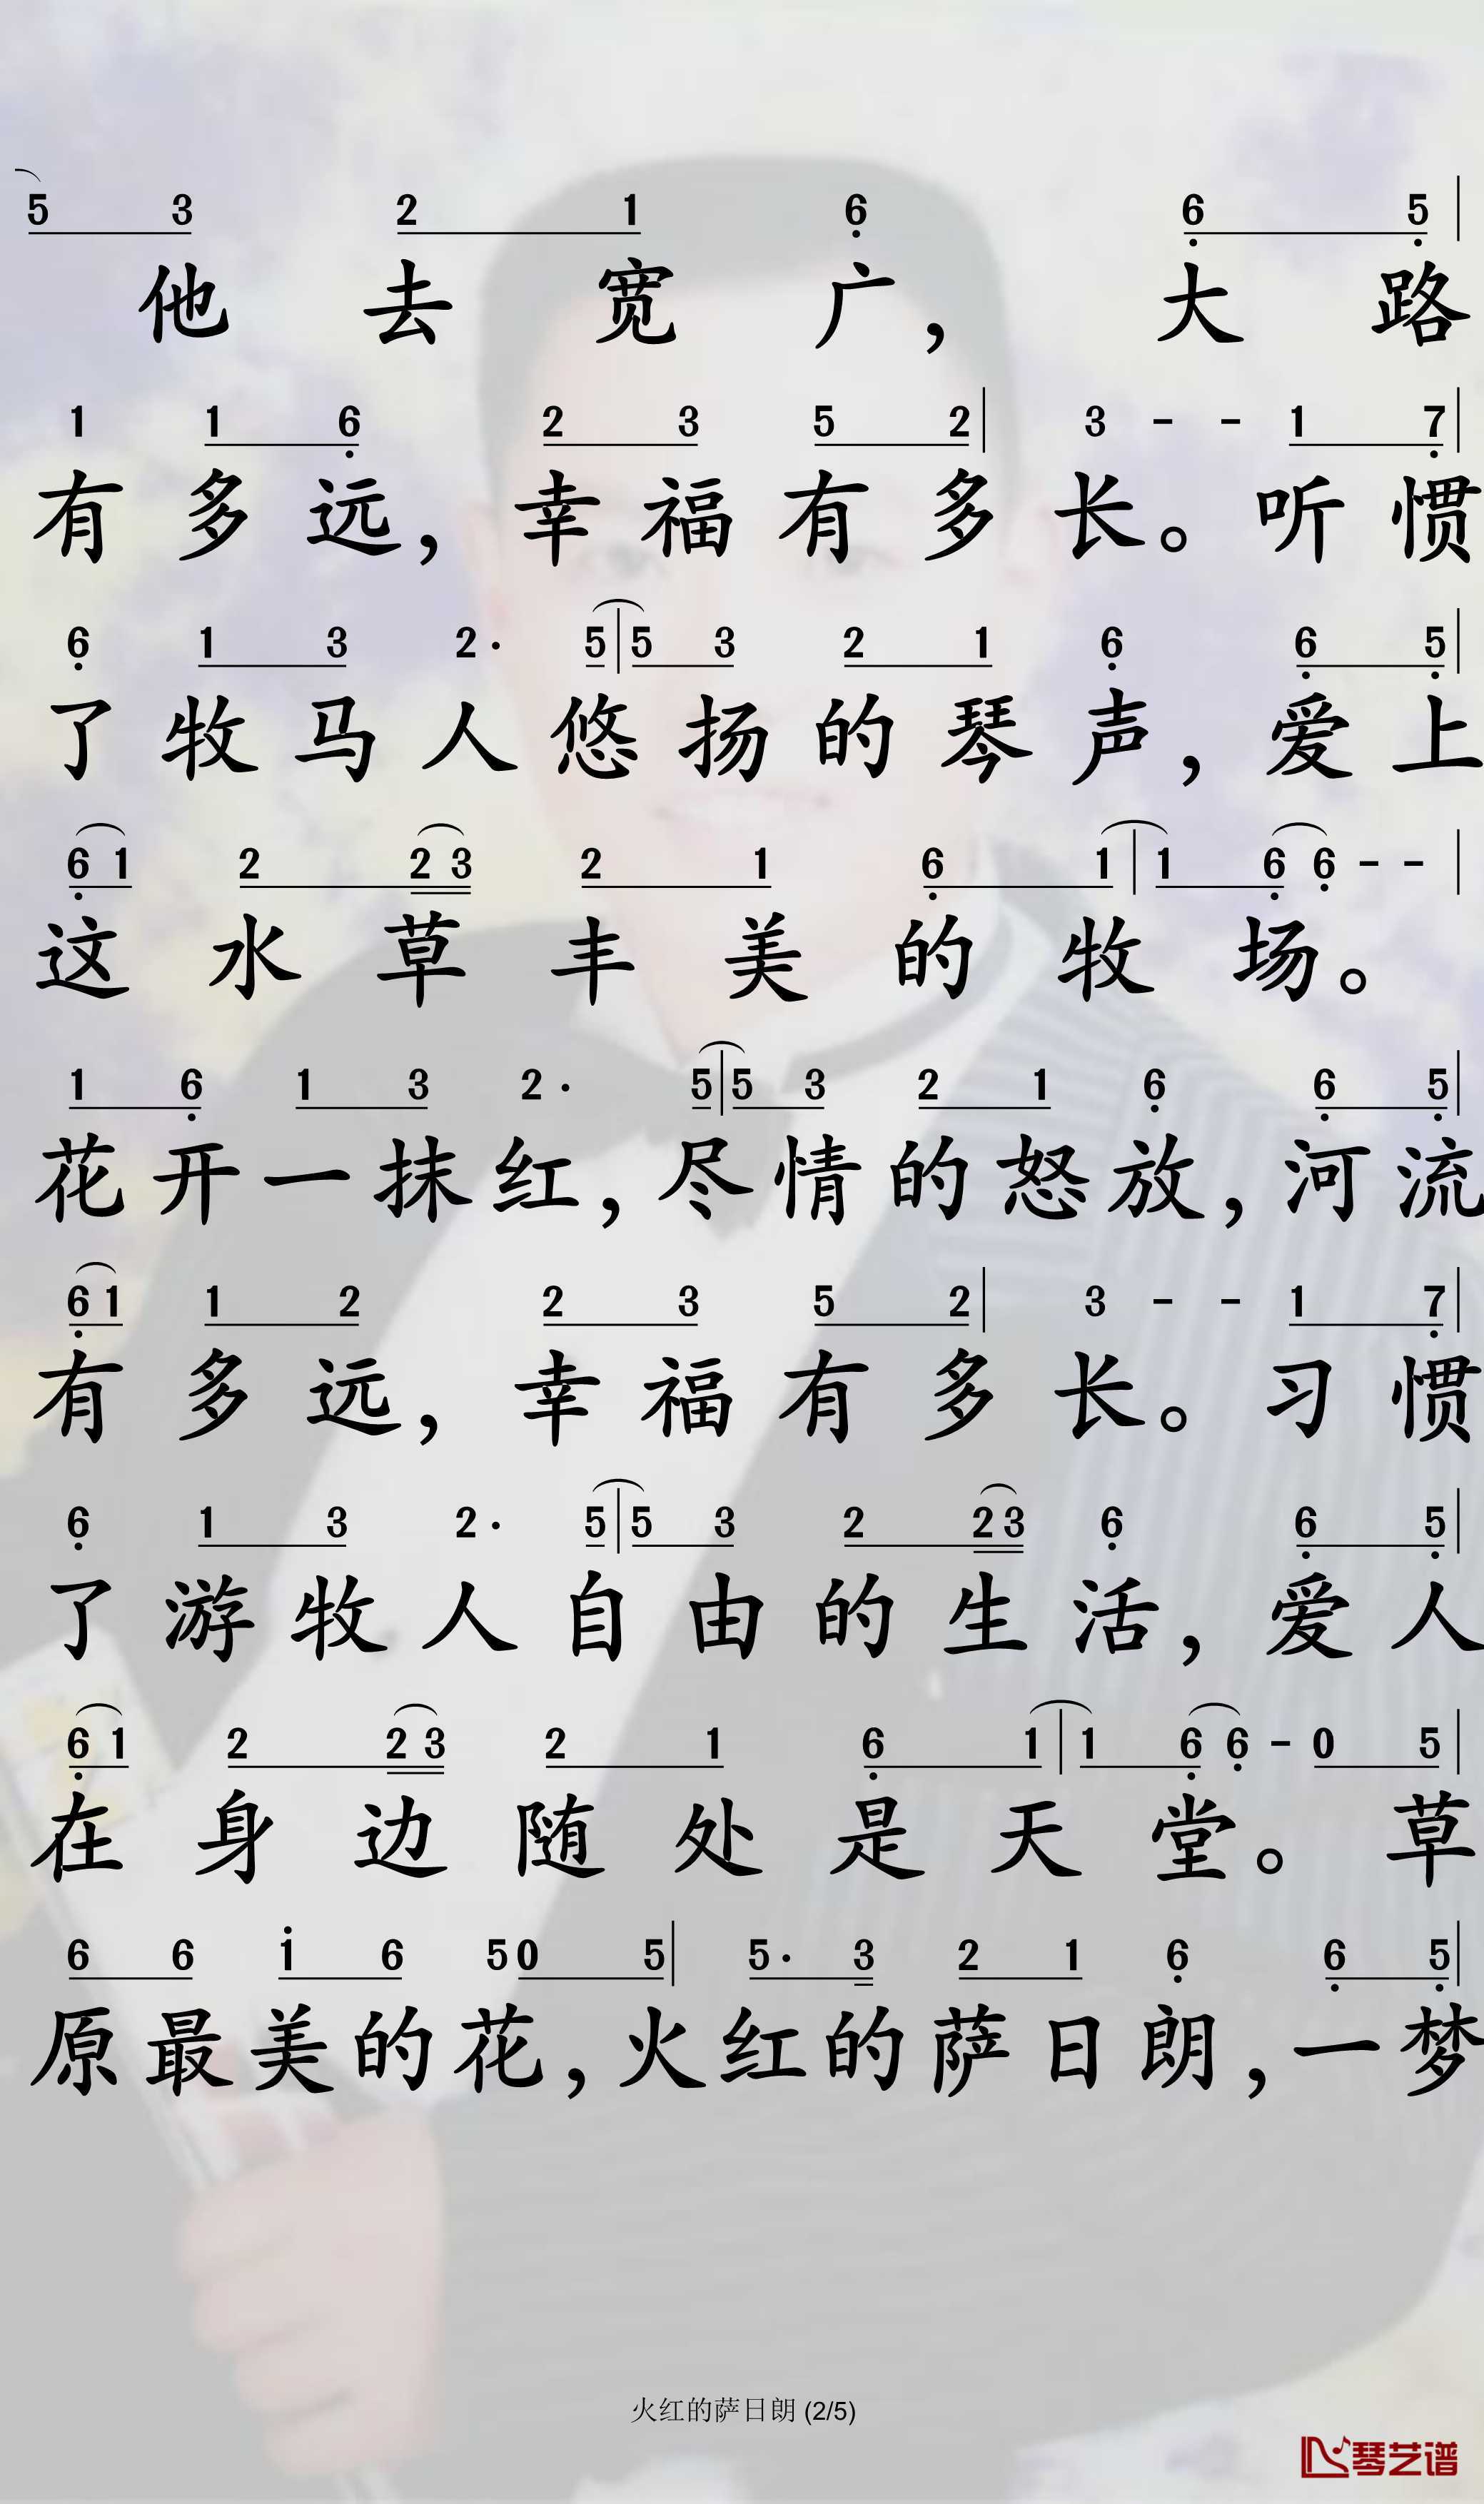 5 3 2 1 6 6 5
他去宽广，大路
1 1 6 2 3 5 2 3 - - 1 7
有多远，幸福有多长。听惯
6 1 3 2· 5 5 3 2 1 6 6 5
了牧马人悠扬的琴声，爱上
6 1 2 2 3 2 1 6 1 1 6 6 - -
这水草丰美的牧场。
1 6 1 3 2· 5 5 3 2 1 6 6 5
花开一抹红，尽情的怒放，河流
6 1 1 2 2 3 5 2 3 - - 1 7
有多远，幸福有多长。习惯
6 1 3 2· 5 5 3 2 2 3 6 6 5
了游牧人自由的生活，爱人
6 1 2 2 3 2 1 6 1 1 6 6 - 0 5
在身边随处是天堂。草
6 6 1 6 5 0 5 5· 3 2 1 6 6 5
原最美的花，火红的萨日朗，一梦
火红的萨日朗 (2/5)
琴艺谱